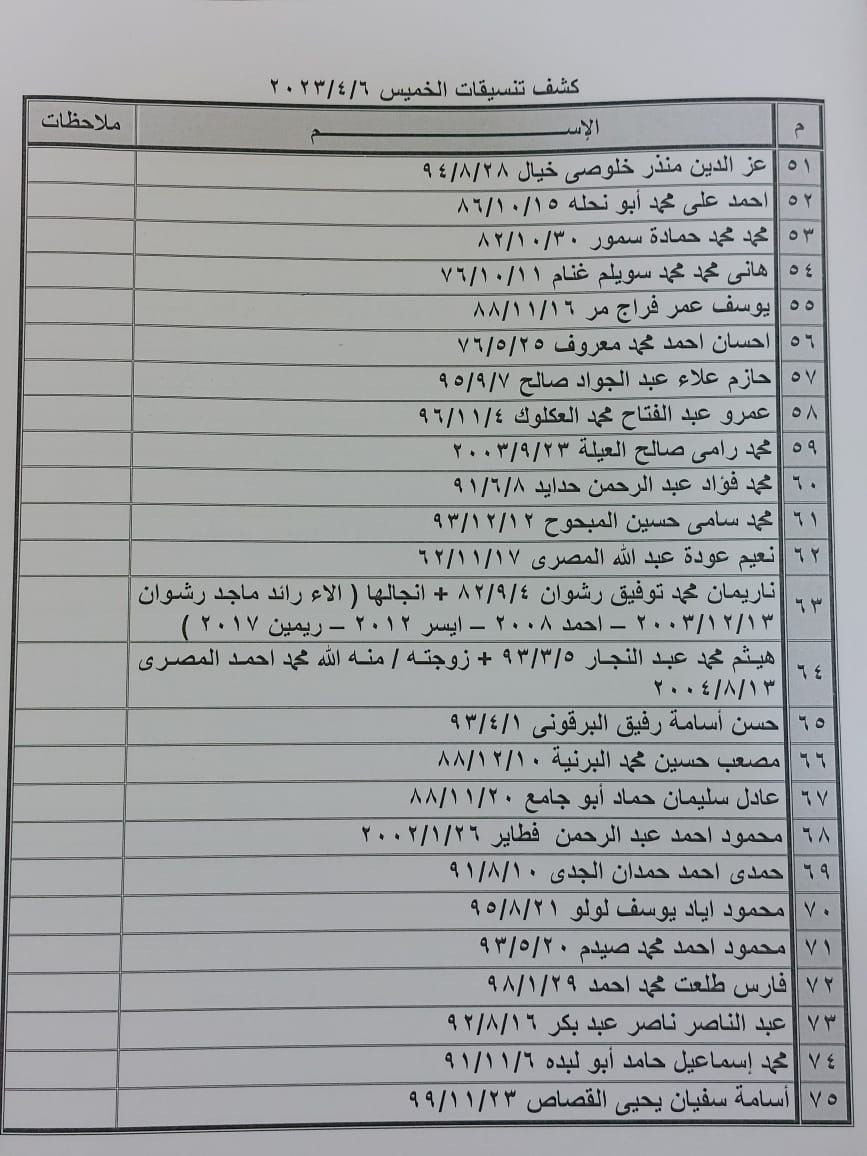 كشف تنسيقات الخميس ٢٠٢٣/٤/٦
م الإســـــم ملاحظات
٥١ عز الدين منذر خلوصى خيال ٩٤/٨/٢٨
٥٢ احمد على محمد أبو نحله ٨٦/١٠/١٥
٥٣ محمد محمد حمادة سمور ٨٢/١٠/٣٠
٥٤ هانى محمد محمد سويلم غنام ٧٦/١٠/١١
٥٥ يوسف عمر فراج مر ٨٨/١١/١٦
٥٦ احسان احمد محمد معروف ٧٦/٥/٢٥
٥٧ حازم علاء عبد الجواد صالح ٩٥/٩/٧
٥٨ عمرو عبد الفتاح محمد العكلوك ٩٦/١١/٤
٥٩ محمد رامى صالح العيلة ٢٠٠٣/٩/٢٣
٦٠ محمد فؤاد عبد الرحمن حدايد ٩١/٦/٨
٦١ محمد سامى حسين المبحوح ٩٣/١٢/١٢
٦٢ نعيم عودة عبد الله المصرى ٦٢/١١/١٧
٦٣ ناريمان محمد توفيق رشوان ٨٢/٩/٤ + انجالها ( الاء رائد ماجد رشوان
٢٠٠٣/١٢/١٣ – احمد ٢٠٠٨ – ايسر ٢٠١٢ – ريمين ٢٠١٧ )
٦٤ هيثم محمد عبد النجار ٩٣/٣/٥ + زوجته / منه الله محمد احمد المصرى
٢٠٠٤/٨/١٣
٦٥ حسن أسامة رفيق البرقونى ٩٣/٤/١
٦٦ مصعب حسين محمد البرنية ٨٨/١٢/١٠
٦٧ عادل سليمان حماد أبو جامع ٨٨/١١/٢٠
٦٨ محمود احمد عبد الرحمن فطاير ٢٠٠٢/١/٢٦
٦٩ حمدى احمد حمدان الجدى ٩١/٨/١٠
٧٠ محمود اياد يوسف لولو ٩٥/٨/٢١
٧١ محمود احمد محمد صيدم ٩٣/٥/٢٠
٧٢ فارس طلعت محمد احمد ٩٨/١/٢٩
٧٣ عبد الناصر ناصر عبد بكر ٩٢/٨/١٦
٧٤ محمد إسماعيل حامد أبو لبده ٩١/١١/٦
٧٥ أسامة سفيان يحيى القصاص ٩٩/١١/٢٣